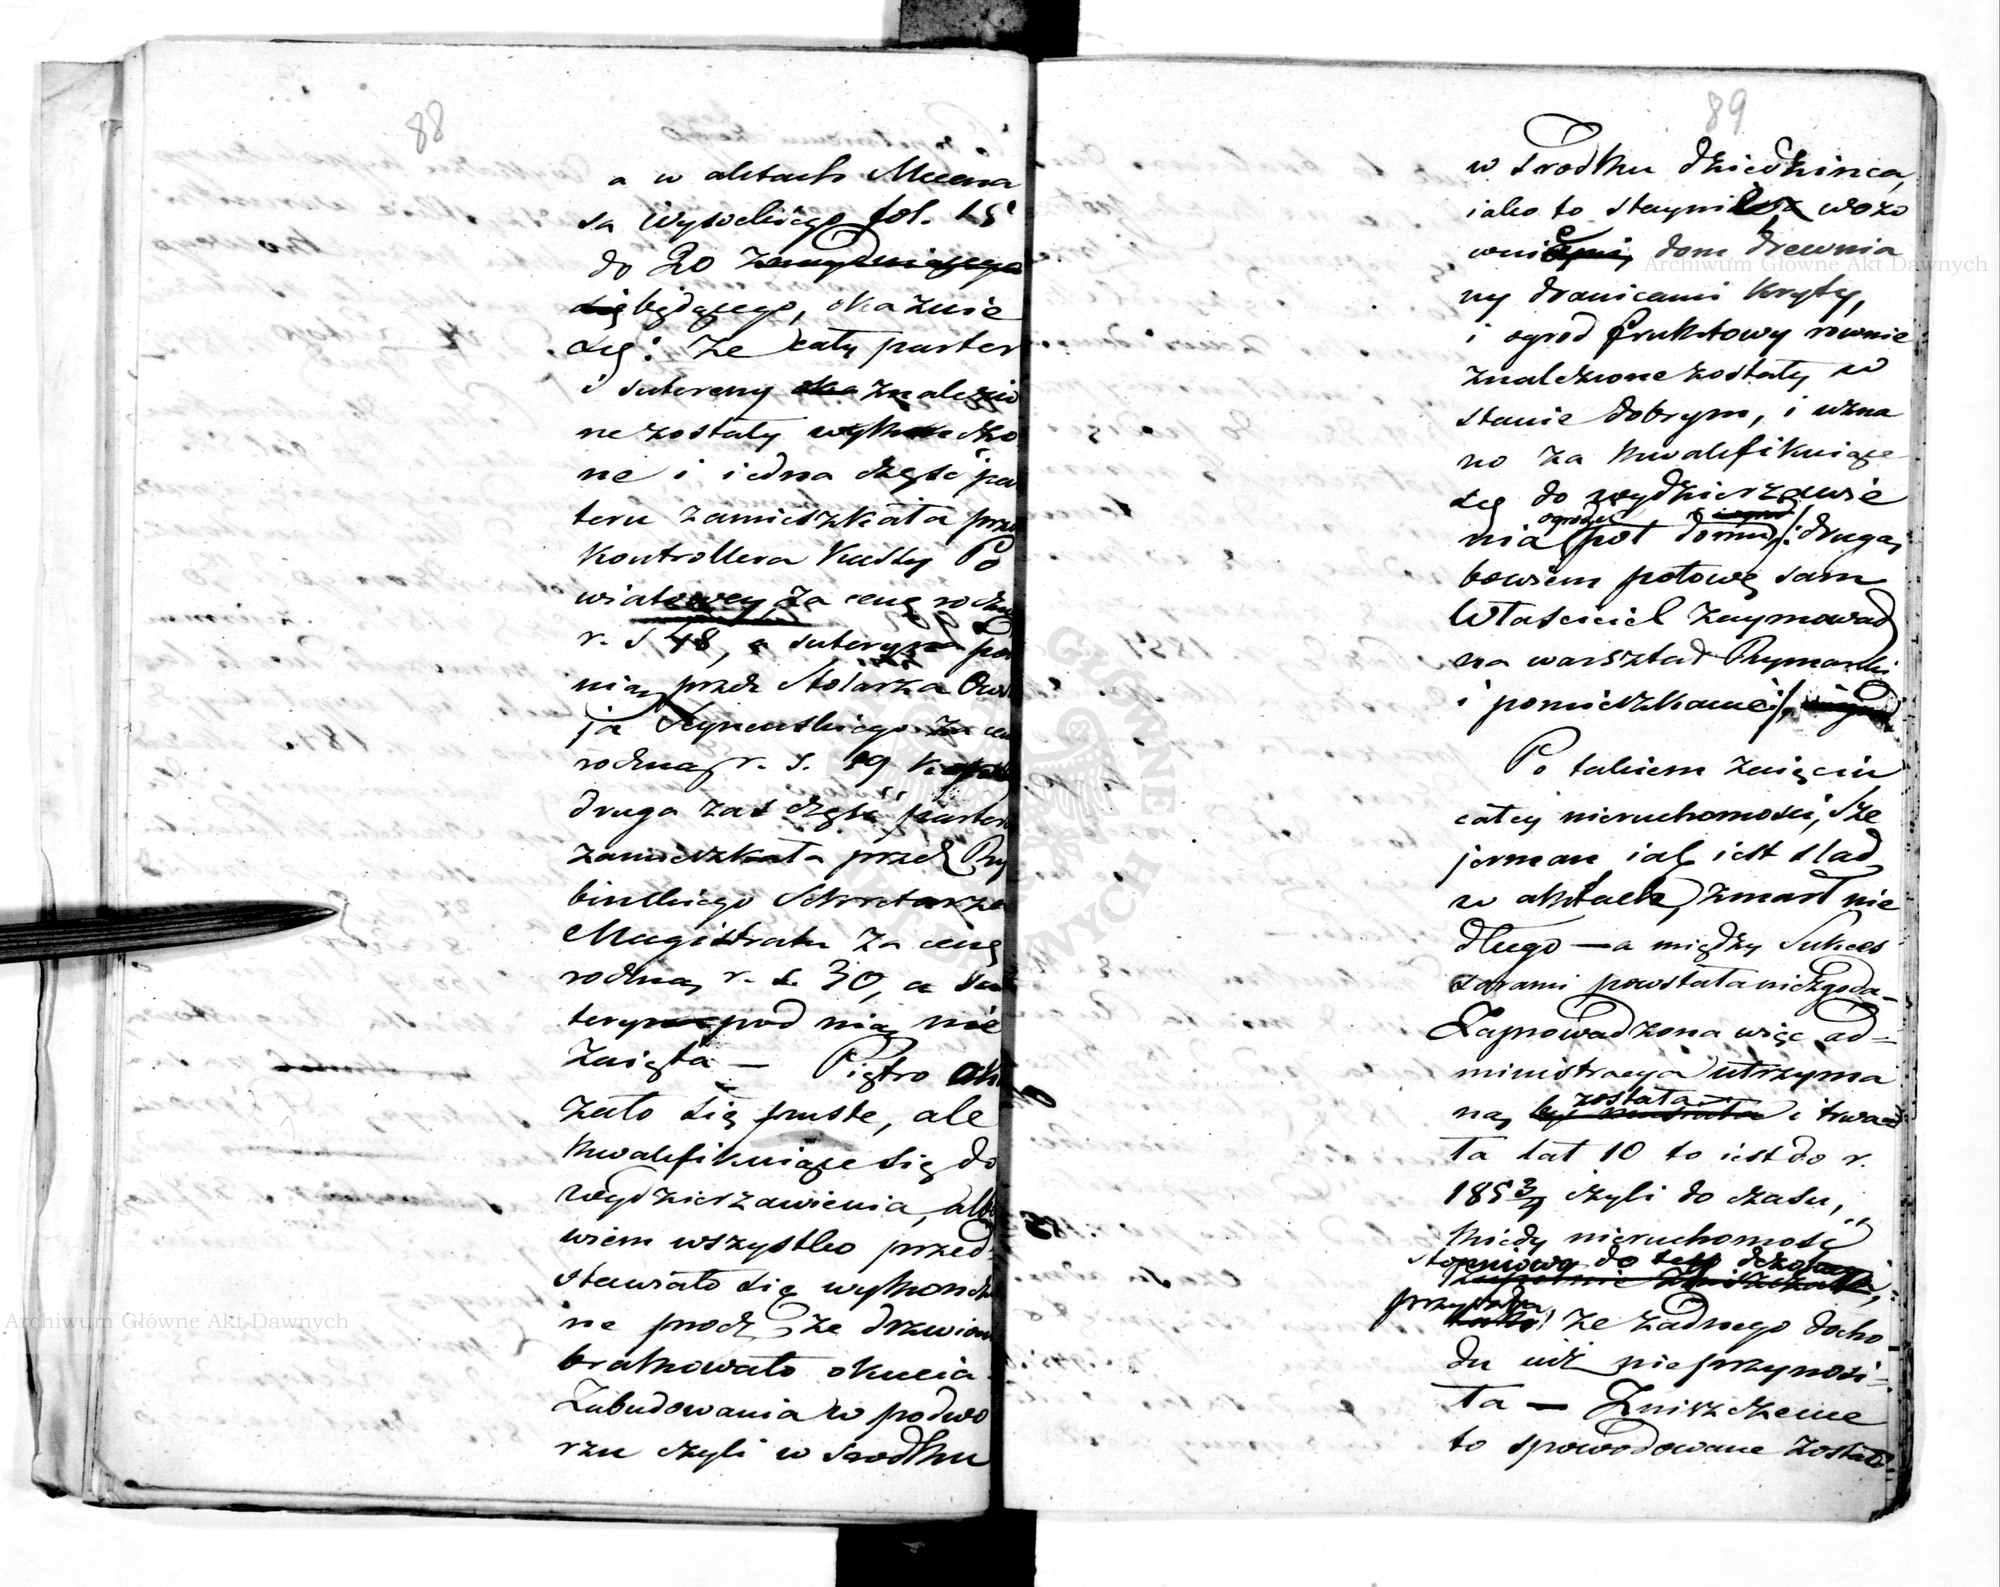 88
a w aktach Mecena
sa Wysockiego fol. 15
do 20
się będącego, okazuie
się: że cały parter
i sutereny znalezio
ne zostały wykończo
ne i iedna część par
teru zamieszkała prze
Kontrollera Kassy Po
wiatowey za cenę roczną
r. s 48, a suteryna pod
nią przez Stolarza
ja za cen
roczną r. s. 19
druga zaś część parteru
zamieszkała przez Ry
bińskiego Sekretarza
Magistratu za cenę
roczną r. s. 30, a su
teryna pod nią nie
zaięta — Piętro oka
zało się puste, ale
kwalifikuiące się do
wydzierzawienia, albo
wiem wszystko przed
stawiało się wykończo
ne procz że drzwiom
brakowało okucia.
Zabudowania w podwo
rzu czyli w srodku
89
w srodku dziedzinca,
iako to staynia wozo
wnie, dom drewnia
ny dranicami kryty,
i ogrod fruktowy rownie
znalezione zostały w
stanie dobrym, i uzna
no za kwalifikuiące
się do wydzierzawie
nia (poł domu i ogrodu: druga
bowiem połowę sam
Właściciel zaymował
na warsztad Rymarski
i pomieszkanie/,
Po takiem zaięciu
całey nieruchomosci, Sze
jerman iak iest slad
w aktach, zmarł nie
długo — a między Sukces
sorami powstała niezgoda —
Zaprowadzona więc ad=
ministracya utrzyma
ną została i trwa
ła lat 10 to iest do r.
1853/4 czyli do czasu,
kiedy nieruchomość
stopniowo do tego
przyszła, że żadnego docho
du iuż nie przynosi=
ła — Zniszczenie
to spowodowane zostało
Archiwum Główne Akt Dawnych
Archiwum Główne Akt Dawnych